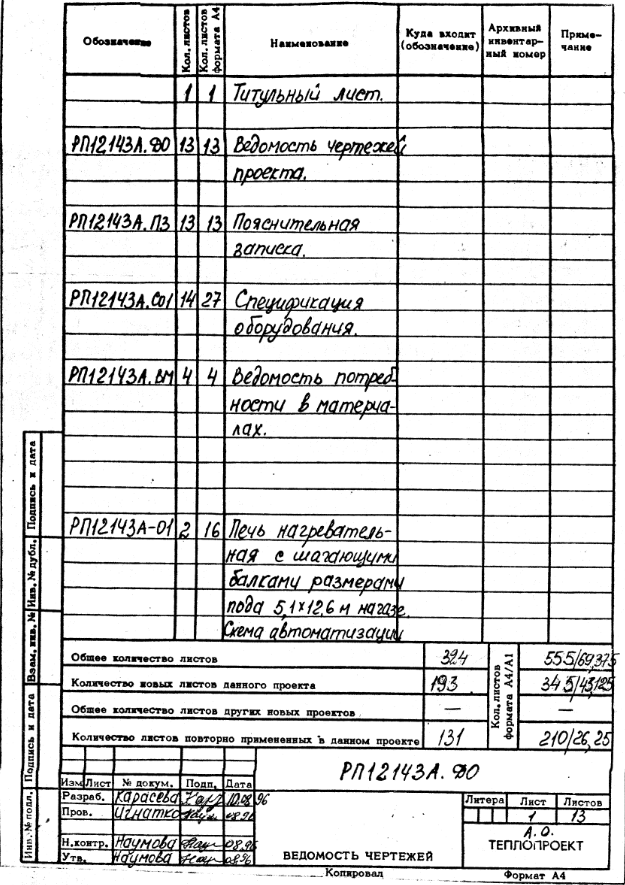 Обозначение Кол. листов Кол. листов формата А4 Наименование Куда входит (обозначение) Архивный инвентарный номер Примечание
1 1 Титульный лист.
РП12143А.ФО 13 13 Ведомость чертежей
проекта.
РП12143А.ПЗ 13 13 Пояснительная
записка.
РП12143А.СО1 14 27 Спецификация
оборудования.
РП12143А.ВМ 4 4 Ведомость потреб-
ности в материа-
лах.
РП12143А-01 2 16 Печь нагреватель-
ная с шагающими
балками размерами
пода 5,1×12,6 м на газе.
Схема автоматизации
Общее количество листов 324 Кол. листов формата А4/А1 555/69,375
Количество новых листов данного проекта 193 345/43,125
Общее количество листов других новых проектов — —
Количество листов повторно примененных в данном проекте 131 210/26,25
РП12143А.ФО
Изм Лист № докум. Подп. Дата
Разраб. Карасева 10.08.96
Пров. Игнатко 08.96
Н.контр. Наумова 08.96
Утв. Наумова 08.96
ВЕДОМОСТЬ ЧЕРТЕЖЕЙ
Литера Лист Листов
1 13
А.О.
ТЕПЛОПРОЕКТ
Копировал Формат А4
Инв. № подл. Подпись и дата Взам. инв. № Инв. № дубл. Подпись и дата